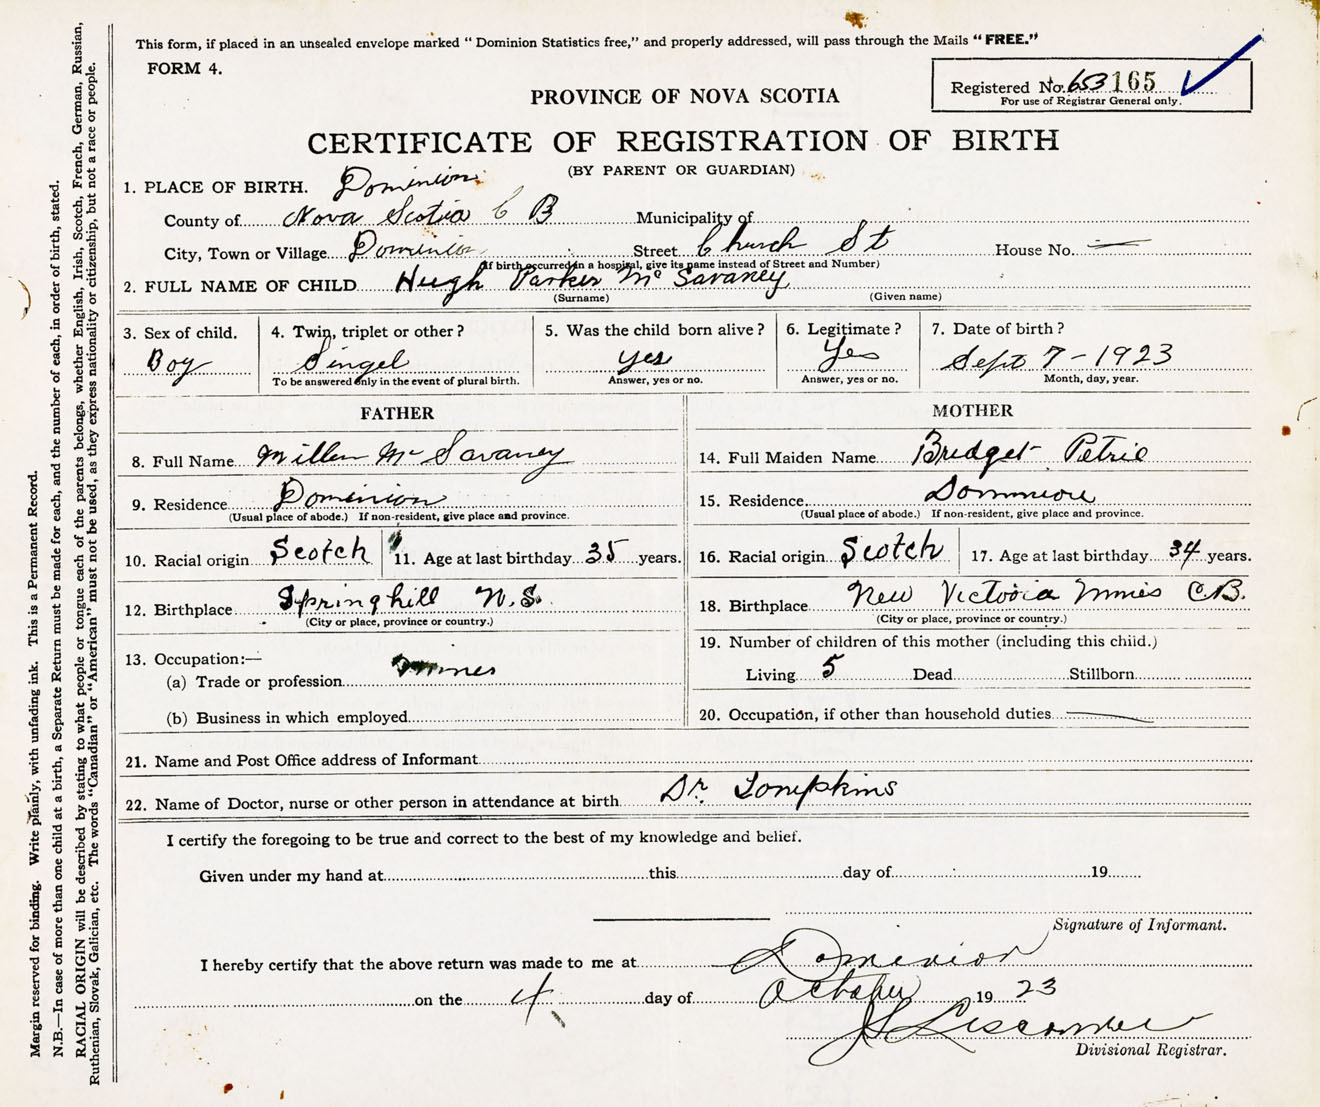 This form, if placed in an unsealed envelope marked " Dominion Statistics free," and properly addressed, will pass through the Mails " FREE."
FORM 4.
Registered No. 653 165
For use of Registrar General only.
PROVINCE OF NOVA SCOTIA
CERTIFICATE OF REGISTRATION OF BIRTH
(BY PARENT OR GUARDIAN)
1. PLACE OF BIRTH. Dominion
County of Nova Scotia C B Municipality of
City, Town or Village Dominion Street Church St House No. —
(If birth occurred in a hospital, give its name instead of Street and Number)
2. FULL NAME OF CHILD Hugh Parker Mc Savaney
(Surname) (Given name)
3. Sex of child. 4. Twin, triplet or other ? 5. Was the child born alive ? 6. Legitimate ? 7. Date of birth ?
Boy Singel yes Yes Sept 7 - 1923
To be answered only in the event of plural birth. Answer, yes or no. Answer, yes or no. Month, day, year.
FATHER MOTHER
8. Full Name Mc Savaney 14. Full Maiden Name Bridget Petrie
9. Residence Dominion 15. Residence
(Usual place of abode.) If non-resident, give place and province. (Usual place of abode.) If non-resident, give place and province.
10. Racial origin Scotch 11. Age at last birthday 35 years. 16. Racial origin Scotch 17. Age at last birthday 34 years.
12. Birthplace Springhill N.S. 18. Birthplace New Victoria C.B.
(City or place, province or country.) (City or place, province or country.)
19. Number of children of this mother (including this child.)
13. Occupation:—
(a) Trade or profession Living 5 Dead Stillborn
(b) Business in which employed 20. Occupation, if other than household duties —
21. Name and Post Office address of Informant
22. Name of Doctor, nurse or other person in attendance at birth Dr. Tompkins
I certify the foregoing to be true and correct to the best of my knowledge and belief.
Given under my hand at this day of 19
Signature of Informant.
I hereby certify that the above return was made to me at Dominion
on the 4 day of October 19 23
Divisional Registrar.
Margin reserved for binding. Write plainly, with unfading ink. This is a Permanent Record.
N.B.—In case of more than one child at a birth, a Separate Return must be made for each, and the number of each, in order of birth, stated.
RACIAL ORIGIN will be described by stating to what people or tongue each of the parents belongs, whether English, Irish, Scotch, French, German, Russian,
Ruthenian, Slovak, Galician, etc. The words "Canadian" or "American" must not be used, as they express nationality or citizenship, but not a race or people.